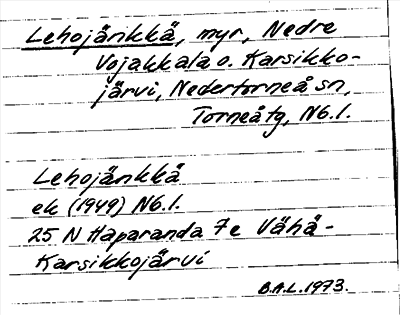 Lehojänkkä, myr, Nedre
Vojakkala o. Karsikko-
järvi, Nedertorneå sn,
Torneå tg, N6.1.
Lehojänkkä
ek (1949) N6.1.
25 N Haparanda 7e Vähä-
Karsikkojärvi
B.A.L. 1973.